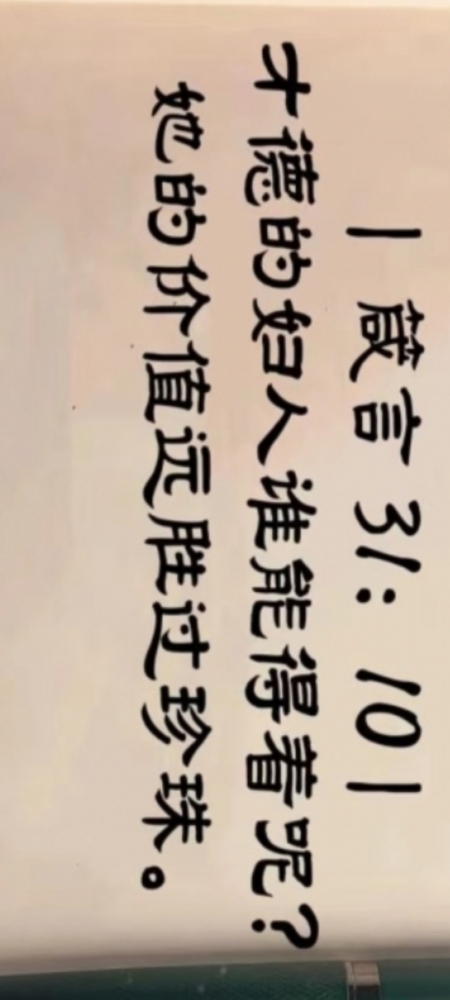 | 箴言 31: 10 |
才德的妇人谁能得着呢?
她的价值远胜过珍珠。